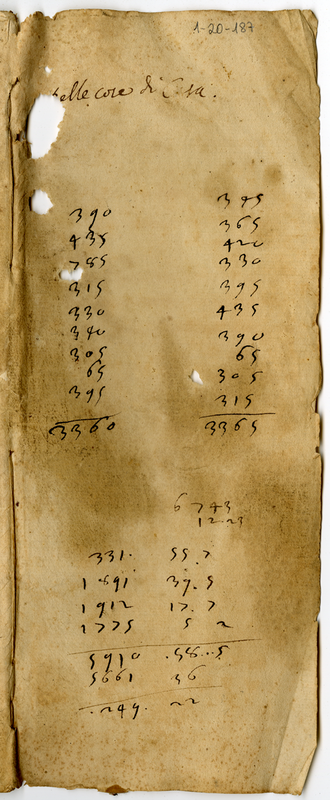 1-20-187
delle cose di Casa.
390
435
785
315
330
340
305
65
395
3360
345
365
420
330
395
435
390
65
305
315
3365
6743
12.23
331. 55.7
1891 37.5
1912 17.7
1775 5 2
5910 .58..5
5661 36
.249. 22